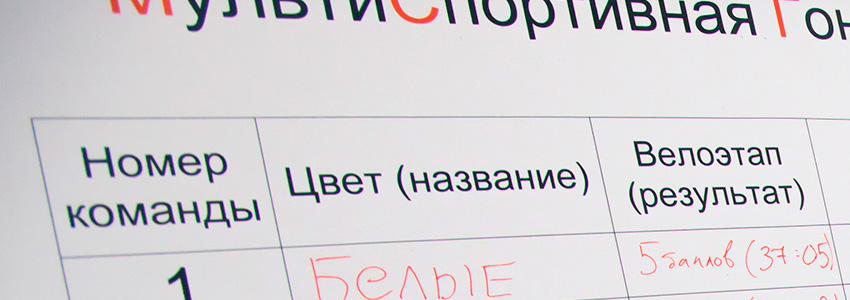 МультиСпортивная Гон
Номер команды
Цвет (название)
Велоэтап (результат)
1
БЕЛЫЕ
5 баллов (37:05)